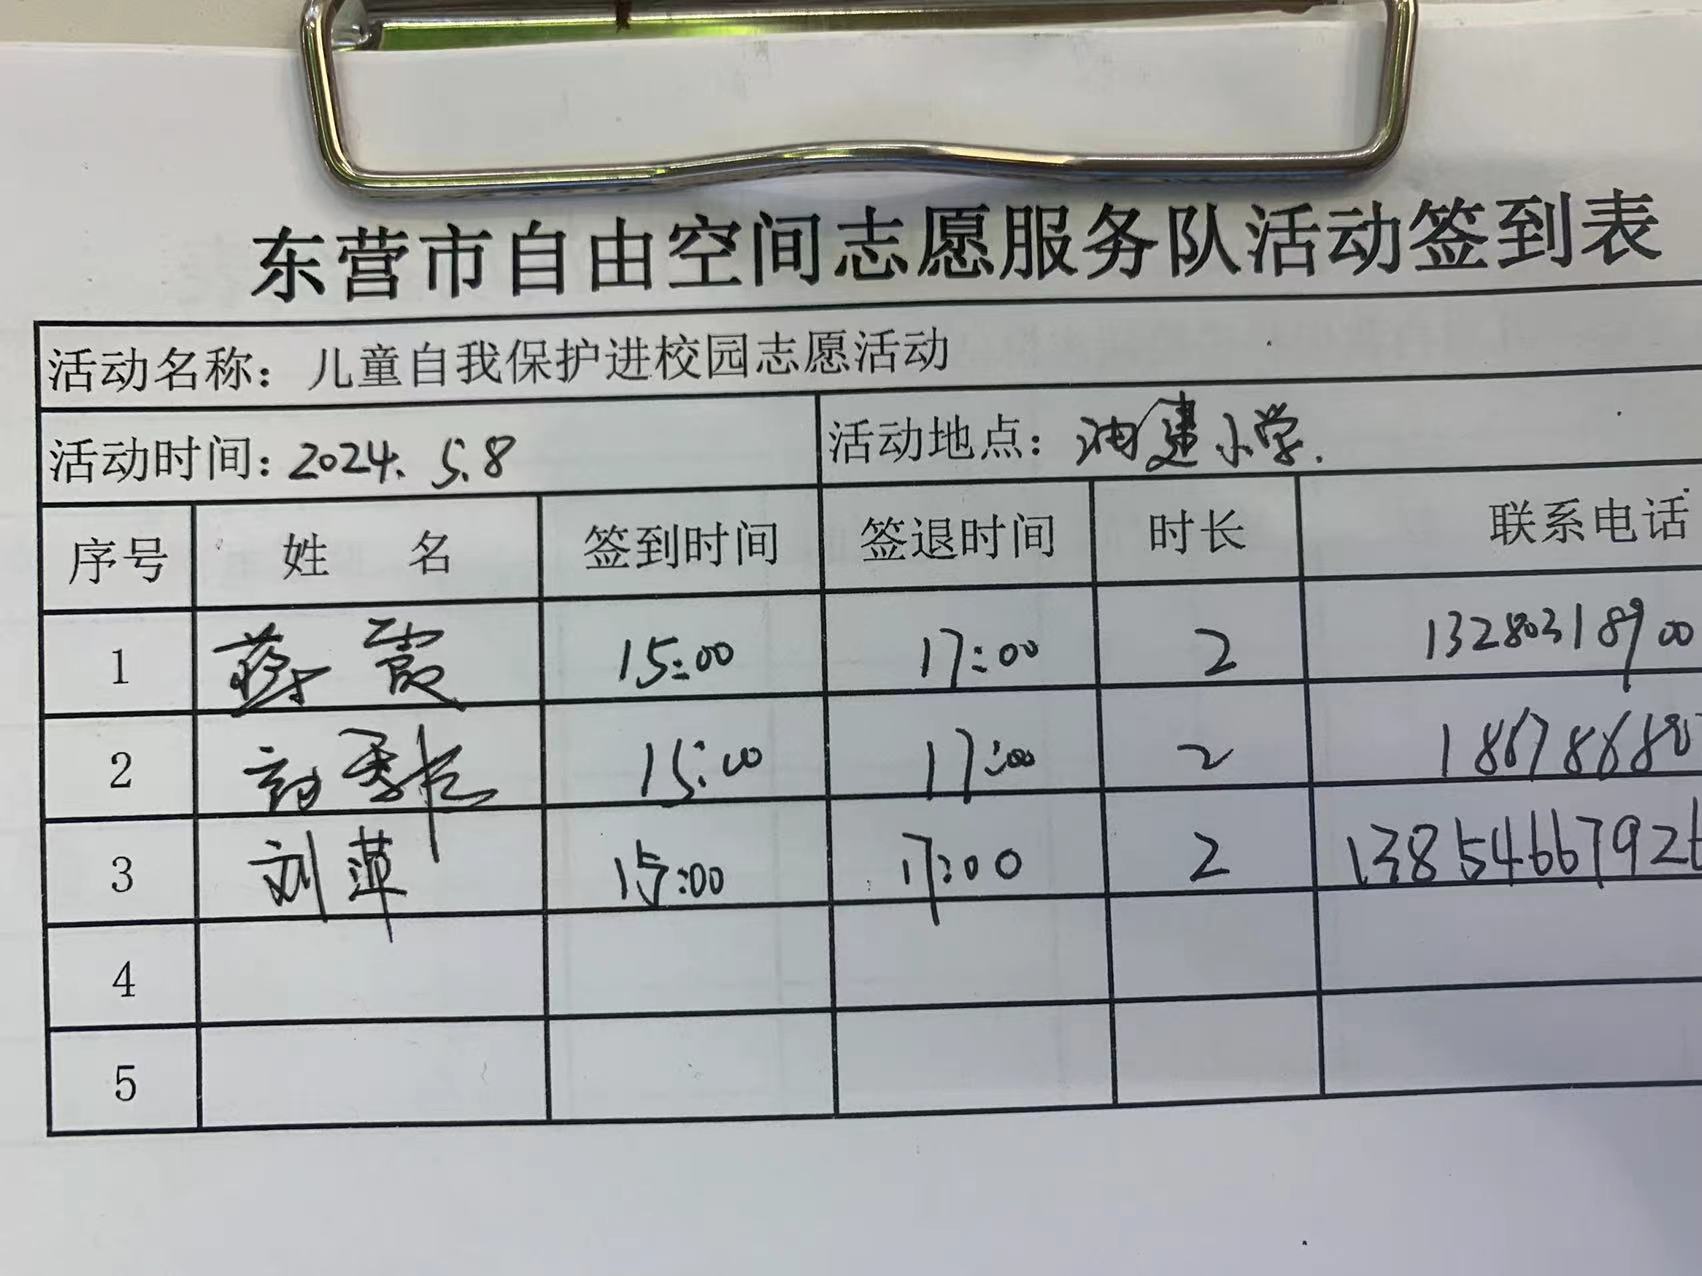 东营市自由空间志愿服务队活动签到表
活动名称：儿童自我保护进校园志愿活动
活动时间：2024.5.8 活动地点：油建小学.
序号 姓名 签到时间 签退时间 时长 联系电话
1 蒋霞 15:00 17:00 2 13280318900
2 15:00 17:00 2 18678680
3 刘萍 15:00 17:00 2 1385466792
4
5